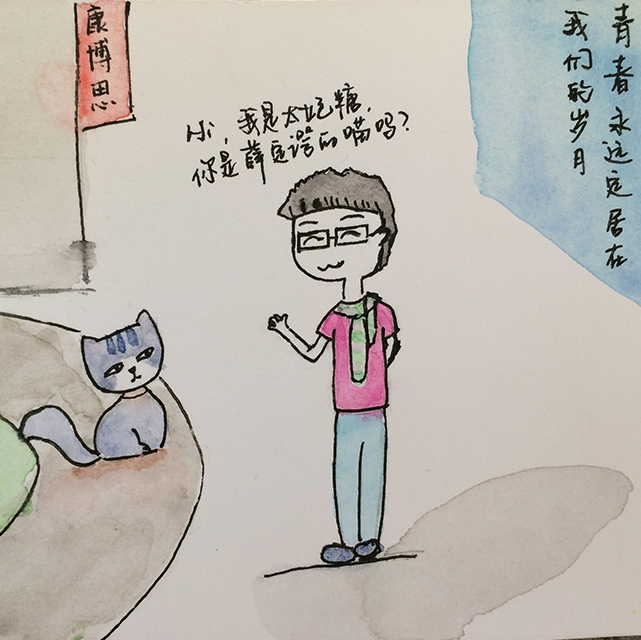 康博思
Hi，我是太妃糖，
你是薛定谔的喵吗？
青春永远定居在
我们的岁月